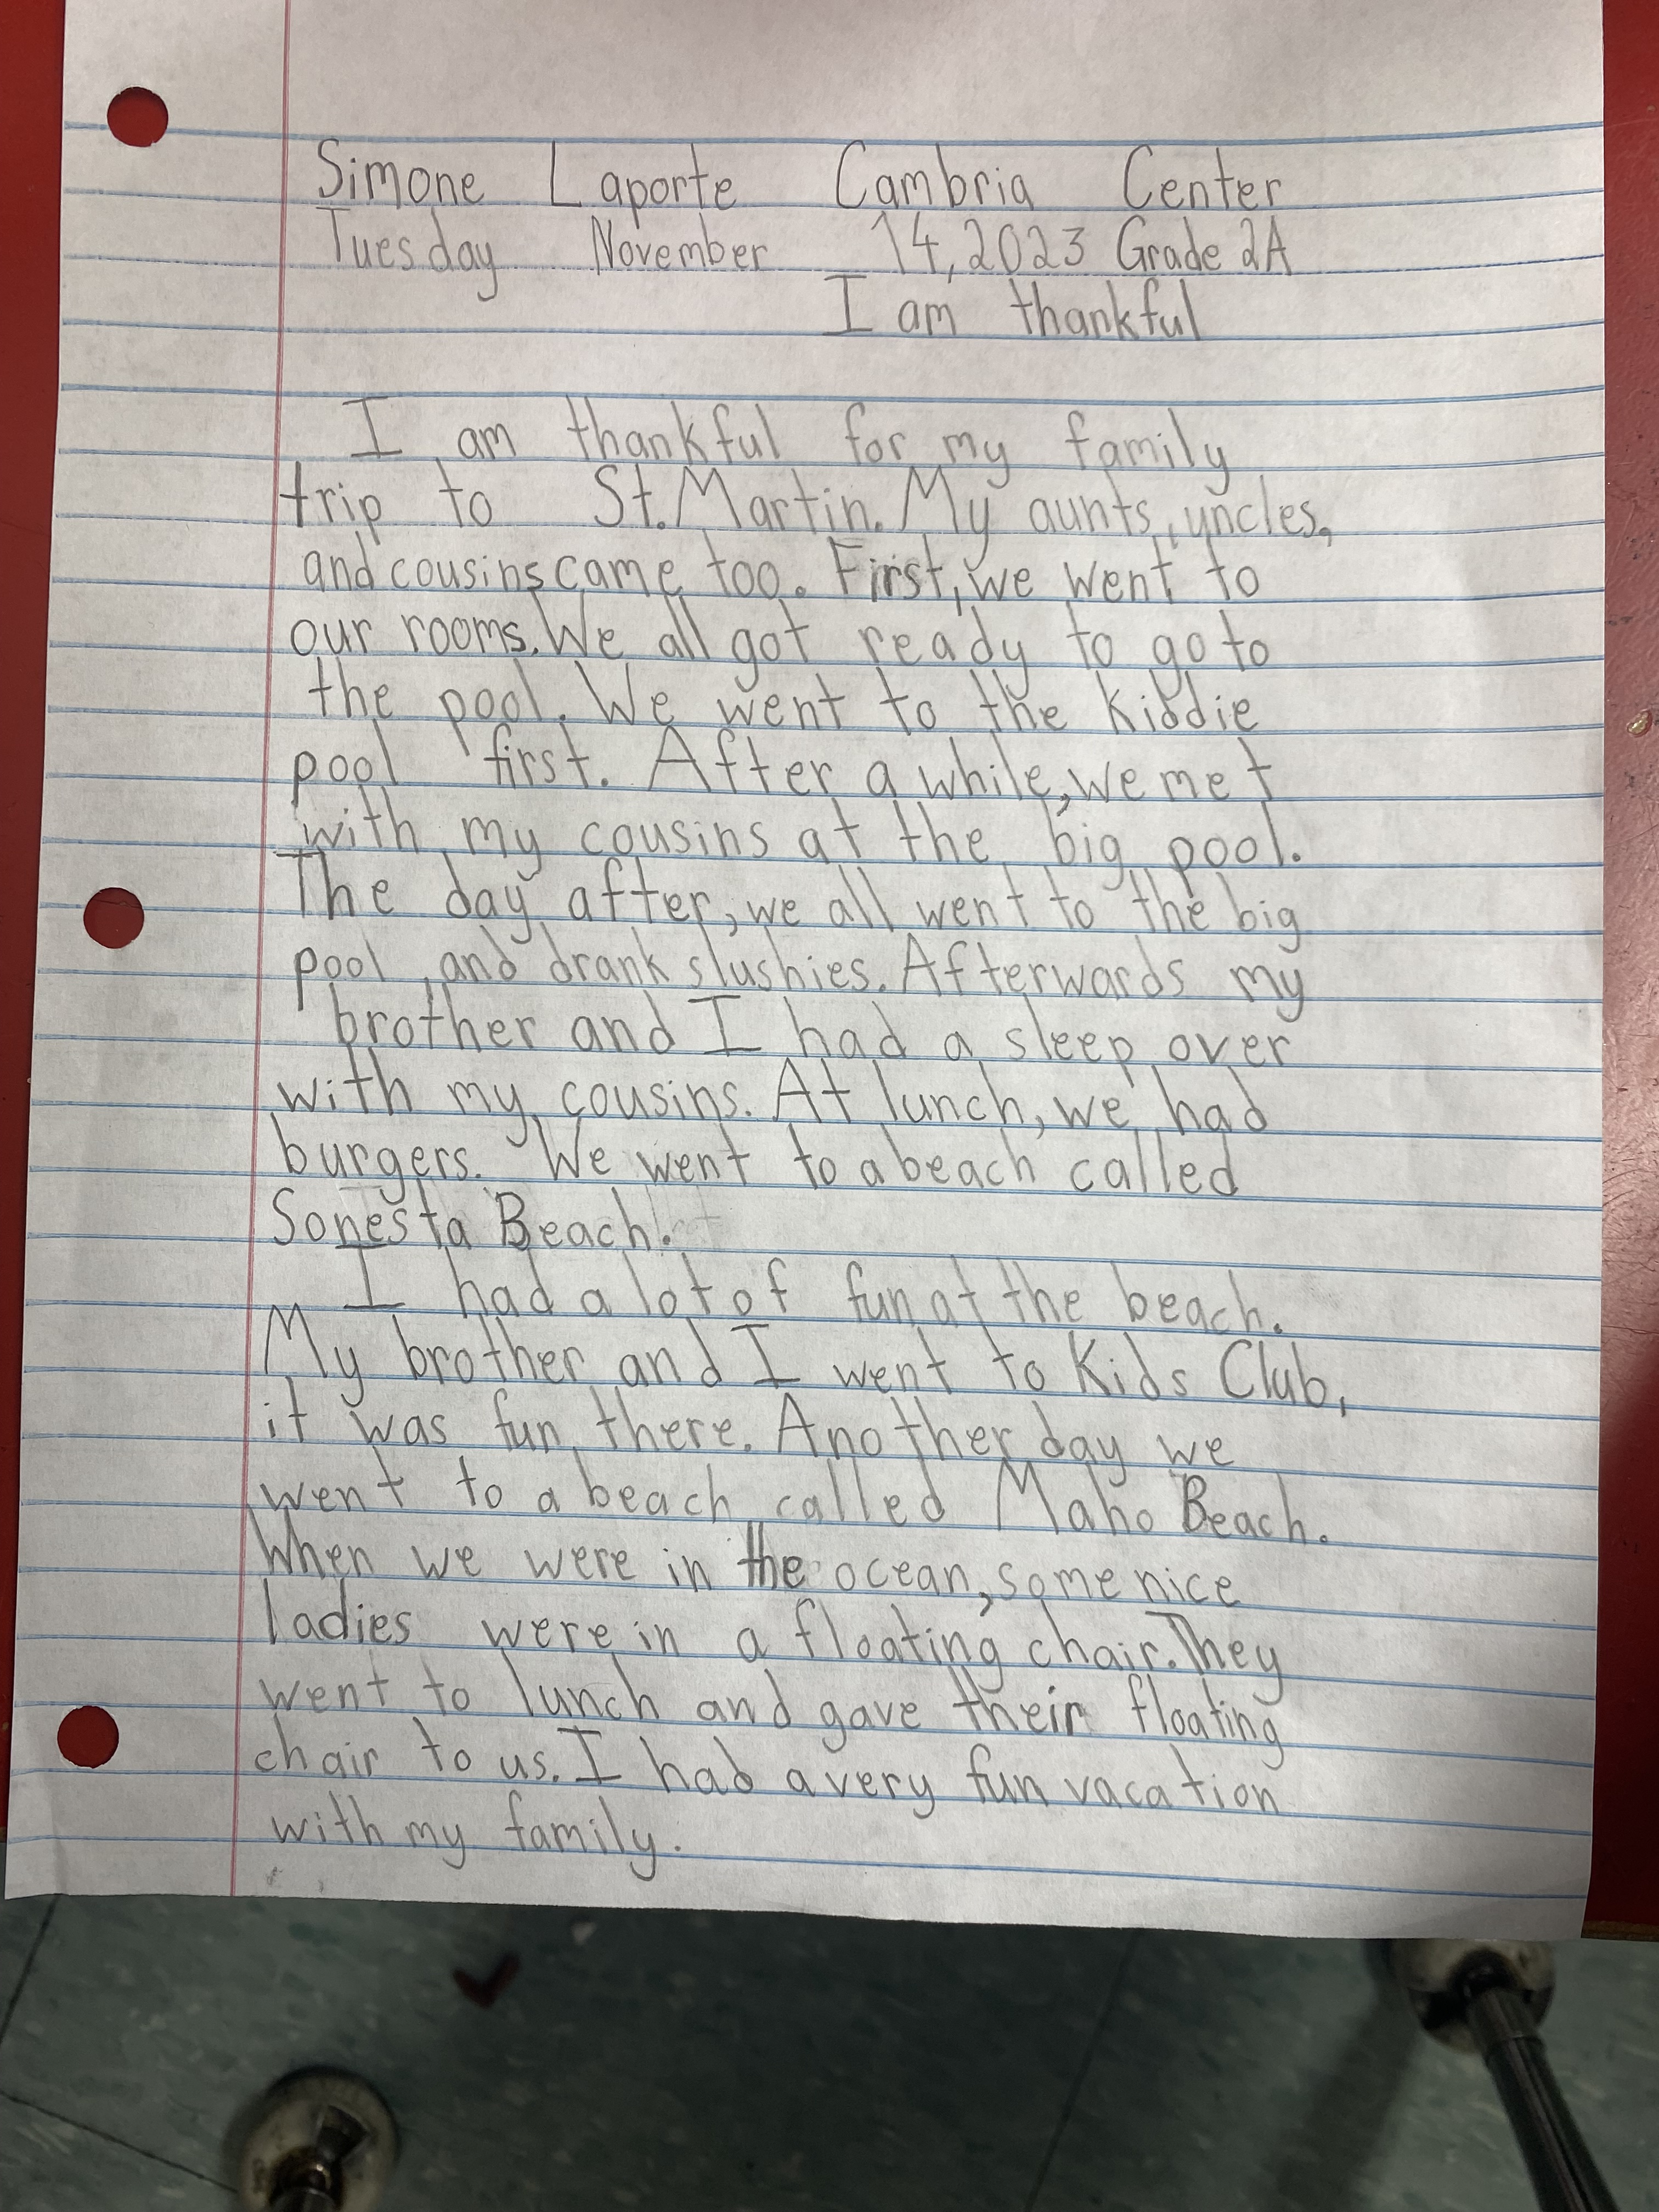 Simone Laporte Cambria Center
Tuesday November 14, 2023 Grade 2A
I am thankful
I am thankful for my family
trip to St. Martin. My aunts, uncles,
and cousins came too. First, we went to
our rooms. We all got ready to go to
the pool. We went to the kiddie
pool first. After a while, we met
with my cousins at the big pool.
The day after, we all went to the big
pool, and drank slushies. Afterwards my
brother and I had a sleep over
with my cousins. At lunch, we had
burgers. We went to a beach called
Sonesta Beach.
I had a lot of fun at the beach.
My brother and I went to Kids Club,
it was fun there. Another day we
went to a beach called Maho Beach.
When we were in the ocean, some nice
ladies were in a floating chair. They
went to lunch and gave their floating
chair to us. I had a very fun vacation
with my family.